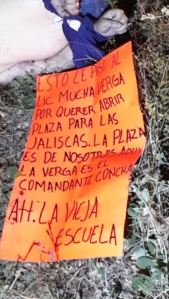 ESTO LE PASO AL
LIC. MUCHA VERGA
POR QUERER ABRIR
PLAZA PARA LAS
JALISCAS. LA PLAZA
ES DE NOSOTRAS AQUI
LA VERGA ES EL
COMANDANTE CONCHA
ATT. LA VIEJA
ESCUELA